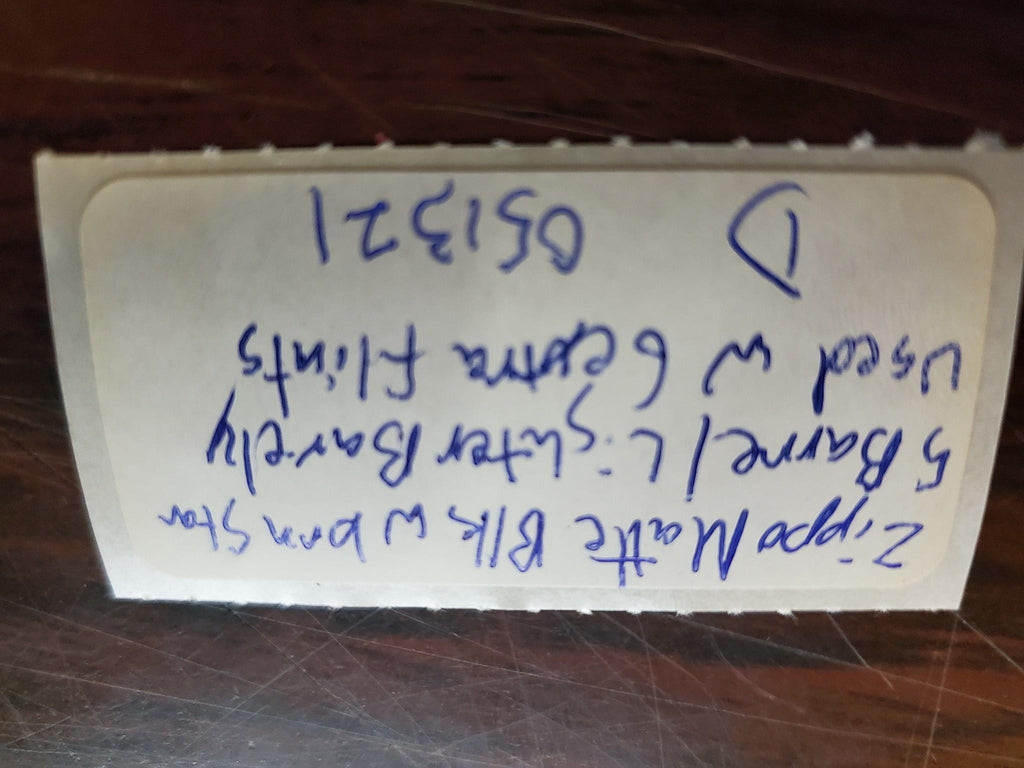 Zippo Matte Blk w brn Star
5 Barrel Lighter Barely
Used w 6 extra flints
D 051321